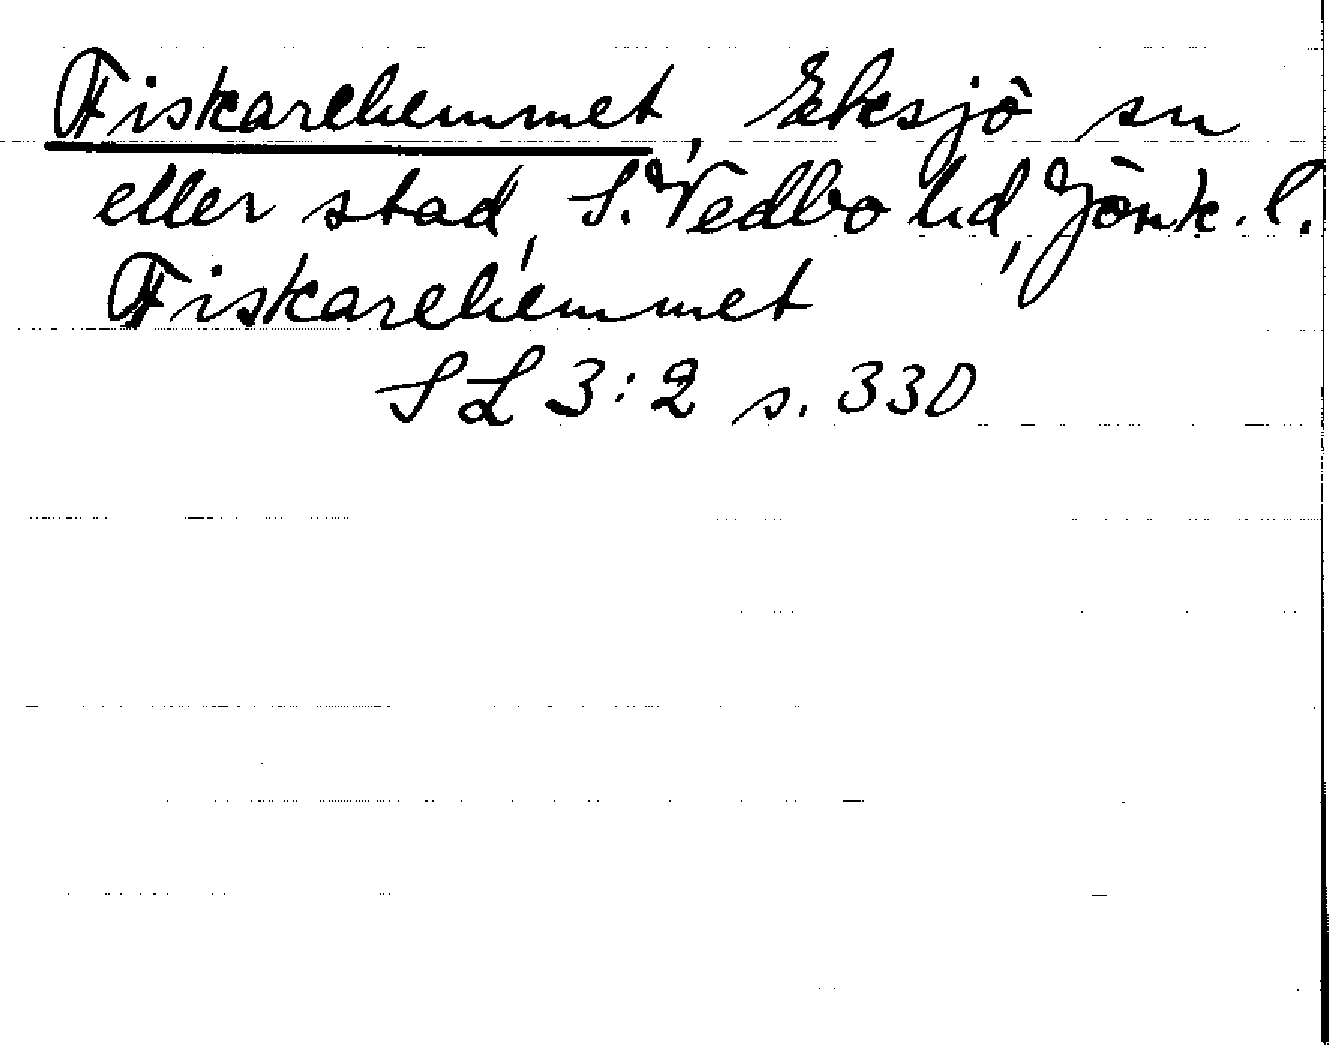 Fiskarehemmet, Eksjö sn
eller stad, S. Vedbo hd, Jönk. l.
Fiskarehemmet
SL 3:2 s. 330